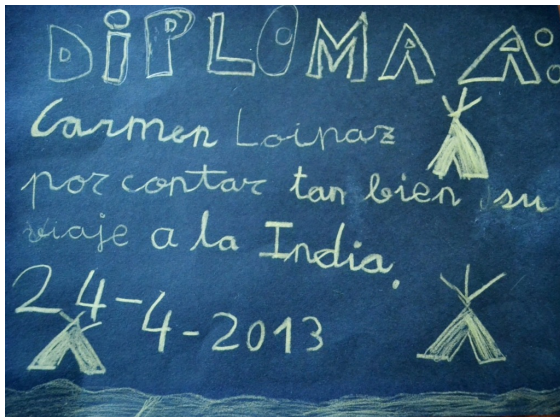 DiPLOMA A:
Carmen Loinaz
por contar tan bien su
viaje a la India.
24-4-2013